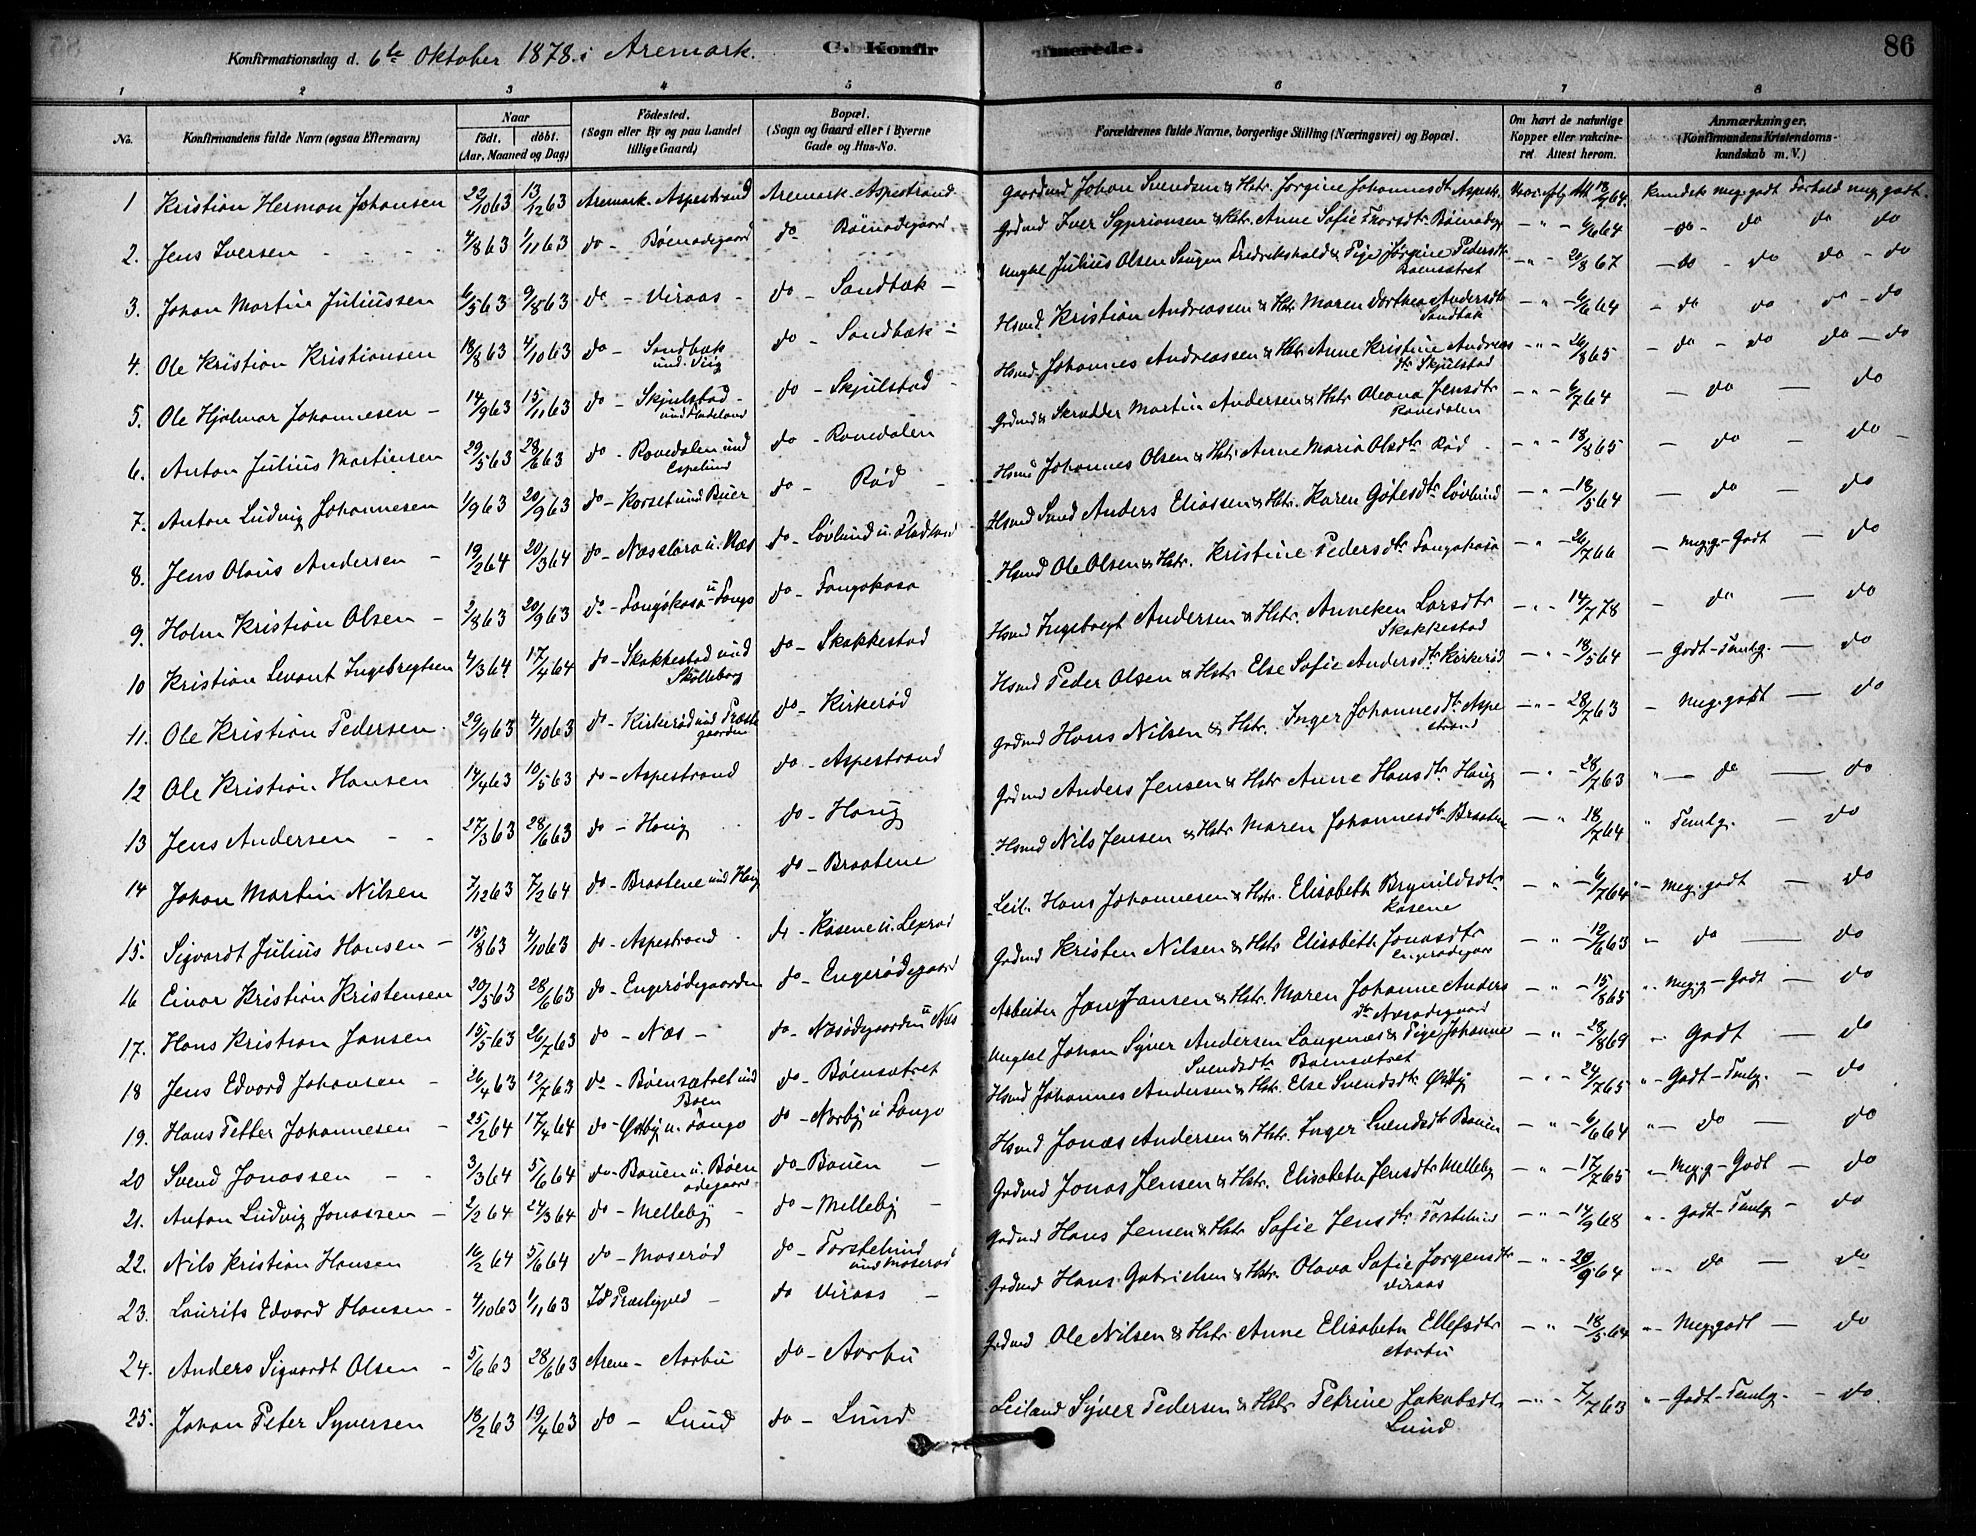 Konfirmationsdag d. 6te Oktober 1878 i Aremark. C. Konfirmerede. 86
1 2 3 4 5 6 7 8
No. Konfirmandens fulde Navn (ogsaa Efternavn) Naar født. døbt. (Aar, Maaned og Dag) Fødested. (Sogn eller By og paa Landet tillige Gaard) Bopæl. (Sogn og Gaard eller i Byerne Gade og Hus-No. Forældrenes fulde Navne, borgerlige Stilling (Næringsvei) og Bopæl. Om havt de naturlige Kopper eller vakcineret. Attest herom. Anmærkninger. (Konfirmandens Kristendomskundskab m. V.)
1 Kristian Herman Johansen 22/10 63 13/12 63 Aremark - Aspestrand Aremark - Aspestrand Gaardmd Johan Svendsen & Hstr. Jørgine Johannesdt Aspestr. 18/9 64 Kundsk. meg. godt Forhold meg. godt
2. Jens Iversen 4/8 63 1/11 63 do - Bøenødegaard do Bøenødegaard Grdmd Iver Syprionsen & Hstr. Anne Sofie Thorsdtr Bøenødeg 6/6 64 do - do do do
3. Johan Martin Juliussen 6/5 63 9/8 63 do - Viraas - do - Sandbæk - Ungkl Julius Olsen Saugen Fredrikshald & Pige Jørgine Pedersdtr Bøensætret 20/8 67 do - do do - do
4. Ole Kristian Kristiansen 18/8 63 4/10 63 do - Sandbæk und. Viig do - Sandbæk - Hsmd. Kristian Andreassen & Hstr Maren Dorthea Andersdtr Sandbæk 6/6 64 - do do do - do
5. Ole Hjalmar Johannesen - 14/9 63 15/11 63 do - Skjulstad - und Fladeland do - Skjulstad - Hsmd. Johannes Andreassen & Hstr Anne Kristine Andreasdtr Skjulstad 20/8 65 - do - do do - do
6. Anton Julius Martinsen 29/5 63 28/6 63 do - Rovedalen und Espelund do - Rovedalen Grdmd & Skrædder Martin Andersen & Hstr Oleana Jensdtr Rovedalen 6/7 64 - do - do
7. Anton Ludvig Johannesen 1/9 63 20/9 63 do - Korset und Buer do - Rød - Hsmd Johannes Olsen & Hstr. Anne Maria Olsdtr Rød 18/8 65 - do - do -
8. Jens Olaus Andersen - 19/2 64 20/3 64 do - Næsslora u. Næs do - Løvlund u. Fladeland Hsmd Lund Anders Eliassen & Hstr. Karen Gøtesdtr Løvlund 18/5 64 - do - do
9. Holm Kristian Olsen - 2/8 63 20/9 63 do - Fangekasa u Fange do - Fangekasa Hsmd Ole Olsen & Hstr. Kristine Pedersdtr Fangekasa 26/7 66 - Meg. g - Godt - do
10 Kristian Levant Ingebregtsen 4/3 64 17/4 64 do - Skakkestad und Skolleborg do - Skakkestad Hsmd Ingebregt Andersen & Hstr. Anneken Larsdtr Skakkestad 14/7 78 - do - do
11. Ole Kristian Pedersen 29/9 63 4/10 63 do - Kirkerød und Præstegaarden do - Kirkerød Hsmd Peder Olsen & Hstr Else Sofie Andersdtr Kirkerød 18/5 64 - Godt - Temlg. - do
12 Ole Kristian Hansen 14/4 63 10/5 63 do - Aspestrand do - Aspestrand Grdmd Hans Nilsen & Hstr. Inger Johannesdtr Aspestrand 28/7 63 - Meg. godt - do
13 Jens Andersen - - 27/3 63 28/6 63 do - Haug do - Haug Grdmd Anders Jensen & Hstr Anne Hansdtr Haug 28/7 63 " - do - do
14 Johan Martin Nilsen 7/12 63 7/2 64 do - Braatene und Haug do - Braatene Hsmd Nils Jensen & Hstr Maren Johannesdtr Braatene 18/7 64 " Temlg. - do
15. Sigvardt Julius Hansen - 15/8 63 4/10 63 do - Aspestrand do - Kasene u. Leprød Leil. Hans Johannesen & Hstr. Elisabeth Brynildsdtr Kasene 6/7 64 - Meg. godt - do
16 Einar Kristian Kristensen 20/5 63 28/6 63 do - Engerødegaarden do - Engerødegaard Grdmd Kristen Nilsen & Hstr Elisabeth Jonasdtr Engerødegaard 12/6 63 " do - do
17. Hans Kristian Jansen 15/5 63 26/7 63 do - Næs - do - Næsødegaarden u Næs Arbeider Jan Jansen & Hstr. Maren Johanne Andersdtr Næsødegaard 15/8 65 " Meg. g - Godt - do
18 Jens Edvard Johansen - 26/4 63 12/7 63 do - Bøensætret und Bøen do - Bøensætret Ungkl Johan Syver Andersen Langenæs & Pige Johanne Svendsdtr Bøensætret 28/8 69 " Godt - do
19. Hans Petter Johannesen - 25/2 64 17/4 64 do - Østby u. Fange do - Nørby u Fange Hsmd Johannes Andersen & Hstr. Else Svendsdtr Østby 24/7 65 " Godt - Temlg. - do
20 Svend Jonassen - - 3/3 64 5/6 64 do - Bøuen u. Bøenødegaard do - Bøuen - Hsmd Jonas Andersen & Hstr. Inger Svendsdtr Bøuen 6/6 64 " do - do
21. Anton Ludvig Jonassen - 2/2 64 27/3 64 do - Melleby - do - Melleby - Grdmd Jonas Jensen & Hstr. Elisabeth Jensdtr Melleby 17/7 65 " Meg. g - Godt - do
22. Nils Kristian Hansen 16/2 64 5/6 64 do - Moserød do - Torstelund und Moserød Grdmd Hans Jensen & Hstr Sofie Jensdtr Torstelund 14/9 68 " Godt - Temlg - do
23. Laurits Edvard Hansen - 4/10 63 1/11 63 Id Præstegjeld - do Viraas - Grdmd Hans Gabrielsen & Hstr. Olava Sofie Jørgensdtr Viraas 20/9 64 " do - do
24. Anders Sigvardt Olsen - 5/6 63 28/6 63 Arem - Aarbu do - Aarbu Grdmd Ole Nilsen & Hstr Anne Elisabeth Ellefsdtr Aarbu 18/5 64 " Meg. godt - do
25. Johan Peter Syversen 18/2 63 19/4 63 do - Lund do - Lund Leiland Syver Pedersen & Hstr Petrine Jakobsdtr Lund 7/7 63 " Godt - Temlg. - do